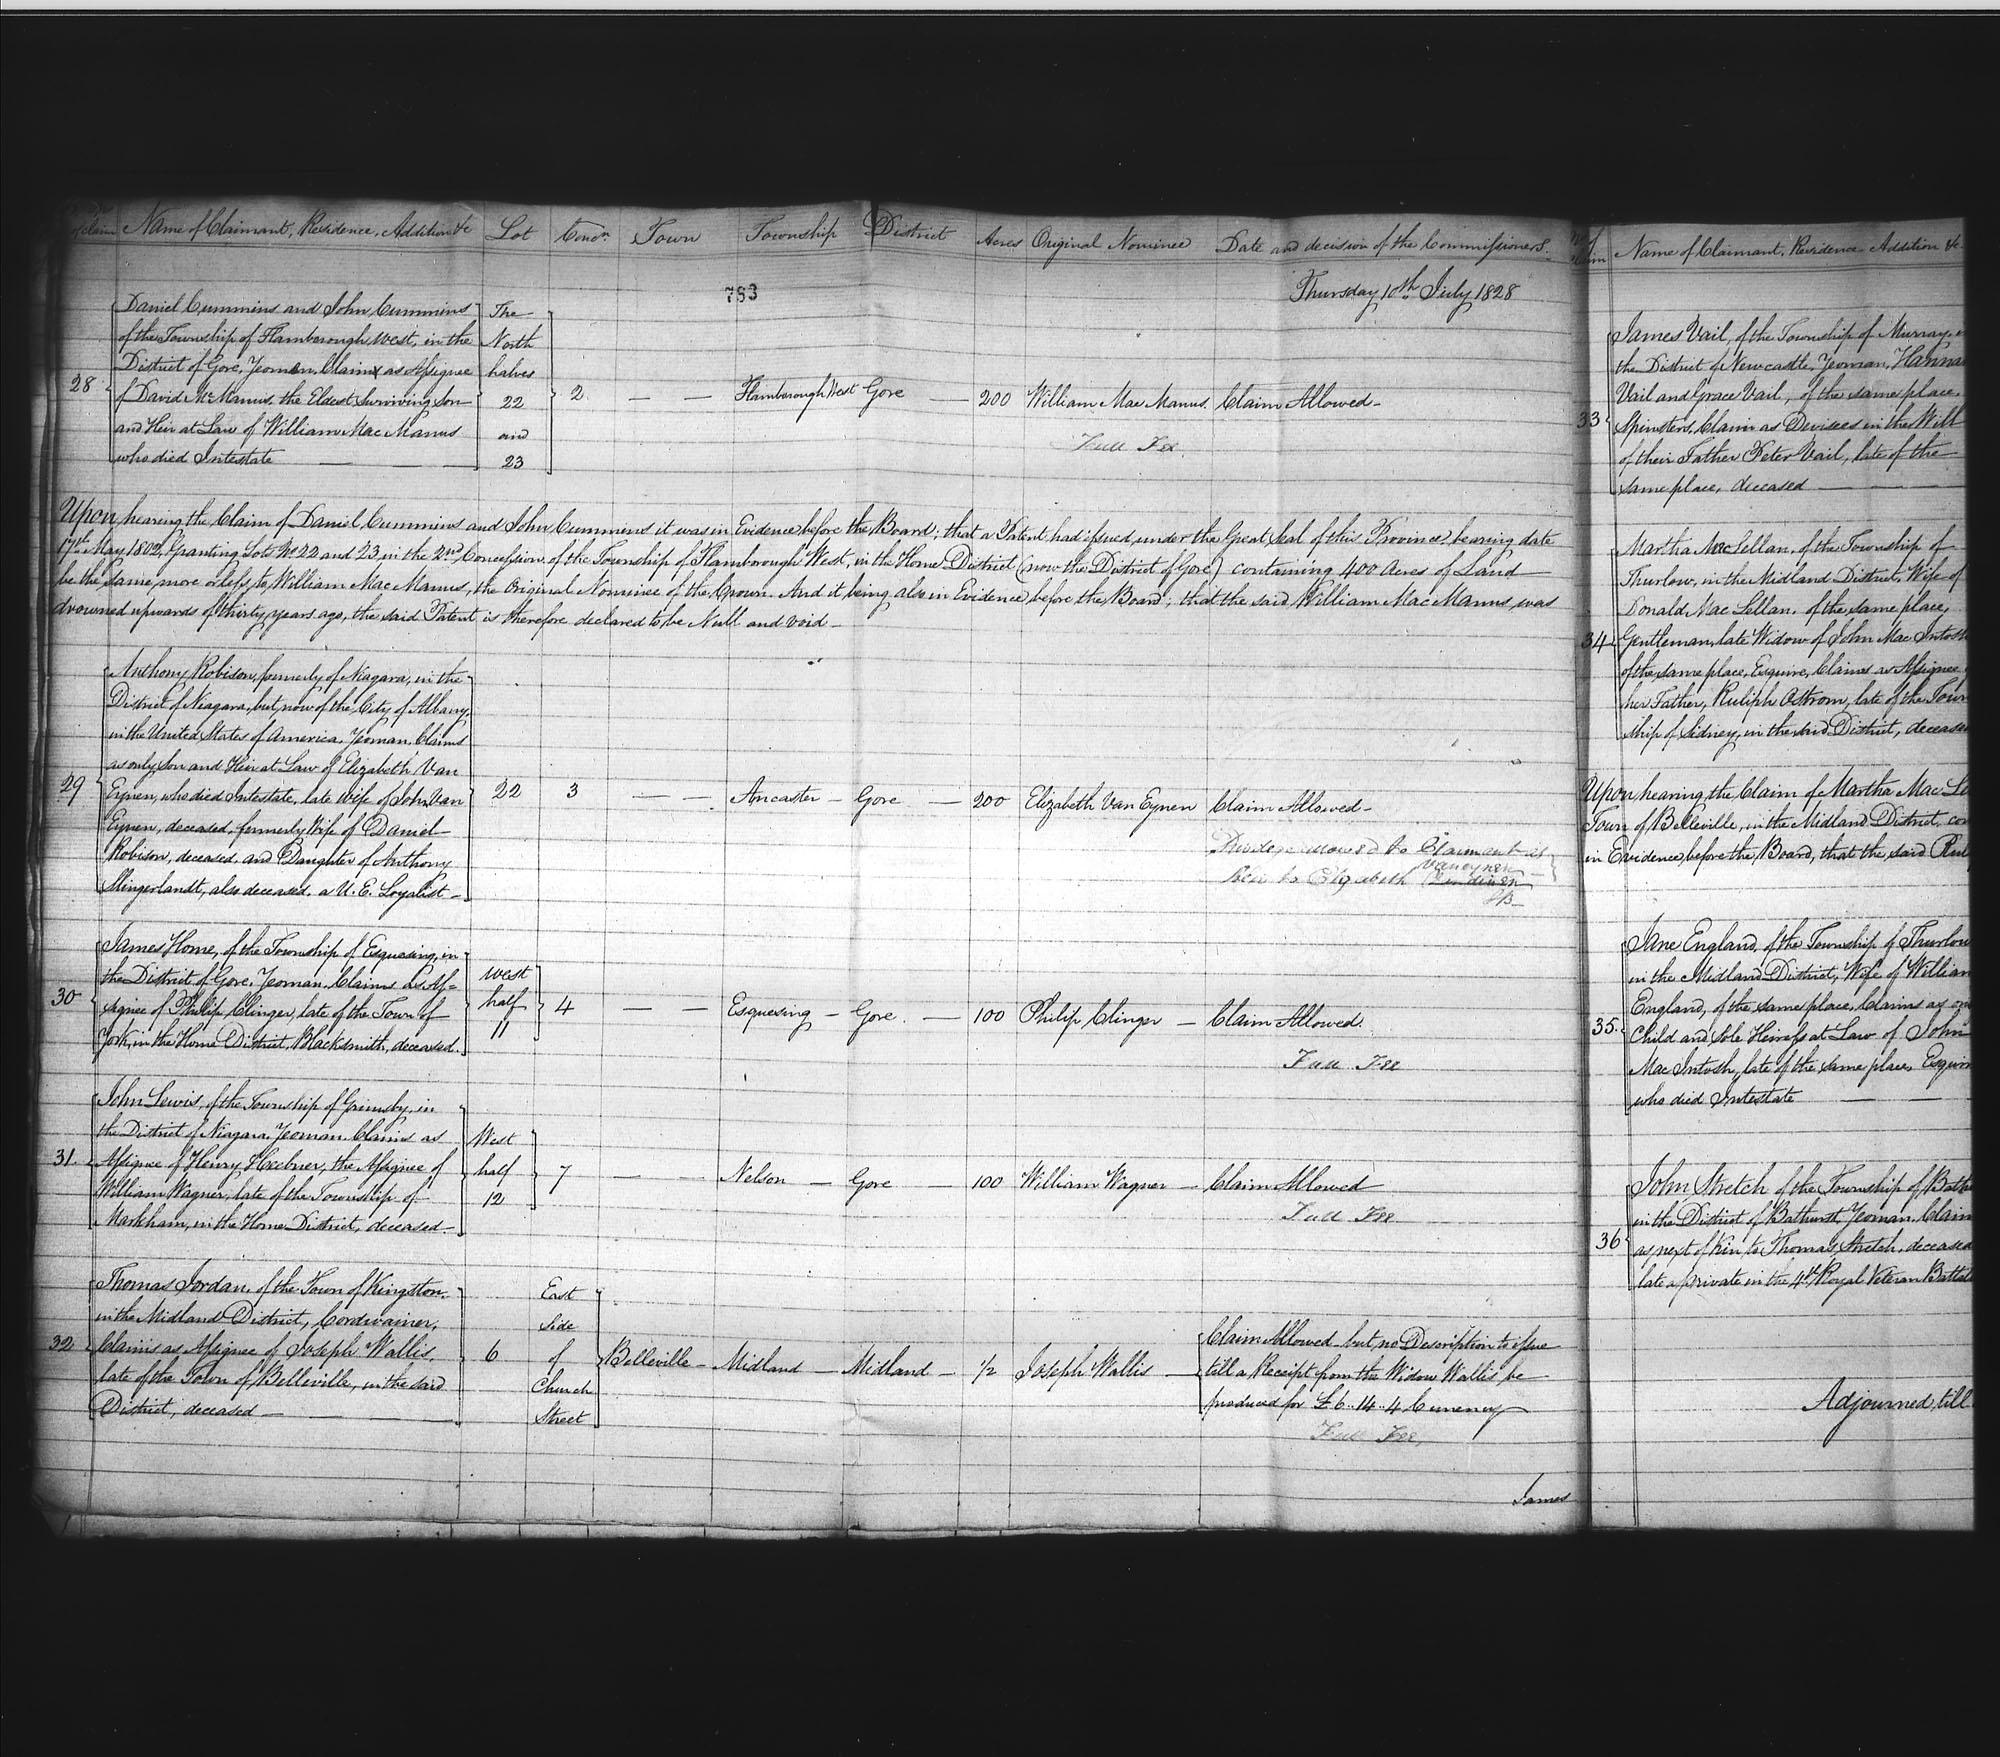 of Claim Name of Claimant, Residence, Addition &c Lot Conc.n Town Township District Acres Original Nominee Date and decision of the Commissioners.
783
Thursday 10th July 1828
28
Daniel Cummins and John Cummins
of the Township of Flamborough West, in the
District of Gore, Yeomen, Claim as Assignee
of David McManus, the Eldest surviving son
and Heir at Law of William MacManus
who died Intestate
The
North
halves
22
and
23
2 — — Flamborough West Gore — 200 William Mac Manus. Claim Allowed—
Full Fee.
Upon hearing the Claim of Daniel Cummins and John Cummins it was in Evidence before the Board; that a Patent had issued under the Great Seal of this Province bearing date
17th May 1802, Granting Lots No 22 and 23 in the 2nd Concession of the Township of Flamborough West, in the Home District (now the District of Gore) containing 400 Acres of Land
be the same more or less, to William Mac Manus, the Original Nominee of the Crown. And it being also in Evidence before the Board; that the said William Mac Manus was
drowned upwards of thirty years ago, the said Patent is therefore declared to be Null and void—
29
Anthony Robison, formerly of Niagara, in the
District of Niagara, but now of the City of Albany,
in the United States of America, Yeoman, Claims
as only Son and Heir at Law of Elizabeth Van
Eynen, who died Intestate, late Wife of John Van
Eynen, deceased, formerly Wife of Daniel
Robison, deceased, and Daughter of Anthony
Slingerlandt, also deceased, a U. E. Loyalist—
22 3 — — Ancaster — Gore — 200 Elizabeth Van Eynen Claim Allowed—
Privilege allowed to Claimant as
Vaneynen
heir to Elizabeth
30
James Home, of the Township of Esquesing, in
the District of Gore, Yeoman, Claims as As=
signee of Philip Clinger, late of the Town of
York, in the Home District, Blacksmith, deceased.
West
half
11
4 — — Esquesing — Gore. — 100 Philip Clinger — Claim Allowed.
Full Fee
31.
John Lewis, of the Township of Grimsby, in
the District of Niagara, Yeoman, Claims as
Assignee of Henry Heebner, the Assignee of
William Wagner, late of the Township of
Markham, in the Home District, deceased—
West
half
12
7 — — Nelson — Gore — 100 William Wagner — Claim Allowed
Full Fee
32
Thomas Jordan, of the Town of Kingston,
in the Midland District, Cordwainer,
Claims as Assignee of Joseph Wallis,
late of the Town of Belleville, in the said
District, deceased —
6
East
side
of
Church
Street
Belleville — Midland — Midland — 1/2 Joseph Wallis —
Claim Allowed—but no Description to issue
till a Receipt from the Widow Wallis be
produced for £6..14..4 Currency
Full Fee,
James
Name of Claimant, Residence Addition &c
33
James Vail, of the Township of Murray,
the District of Newcastle, Yeoman, Hanna
Vail and Grace Vail, of the same place,
Spinsters, Claim as Devisees in the Will
of their Father Peter Vail, late of the
same place, deceased — — —
34
Martha Mac Lellan, of the Township of
Thurlow, in the Midland District, Wife of
Donald Mac Lellan, of the same place,
Gentleman, late Widow of John Mac Intosh
of the same place, Esquire, Claims as Assignee
her Father, Ruliph Ostrom, late of the Town
ship of Sidney, in the said District, deceased
Upon hearing the Claim of Martha Mac Le
Town of Belleville, in the Midland District, con
in Evidence before the Board, that the said Rul
35.
Jane England, of the Township of Thurlow
in the Midland District, Wife of William
England, of the same place, Claims as on
Child and Sole Heiress at Law of John
Mac Intosh, late of the same place, Esquire
who died Intestate — —
36
John Stretch of the Township of Bath
in the District of Bathurst, Yeoman, Claim
as next of Kin to Thomas Stretch, deceased
late a private in the 4th Royal Veteran Battal
Adjourned till